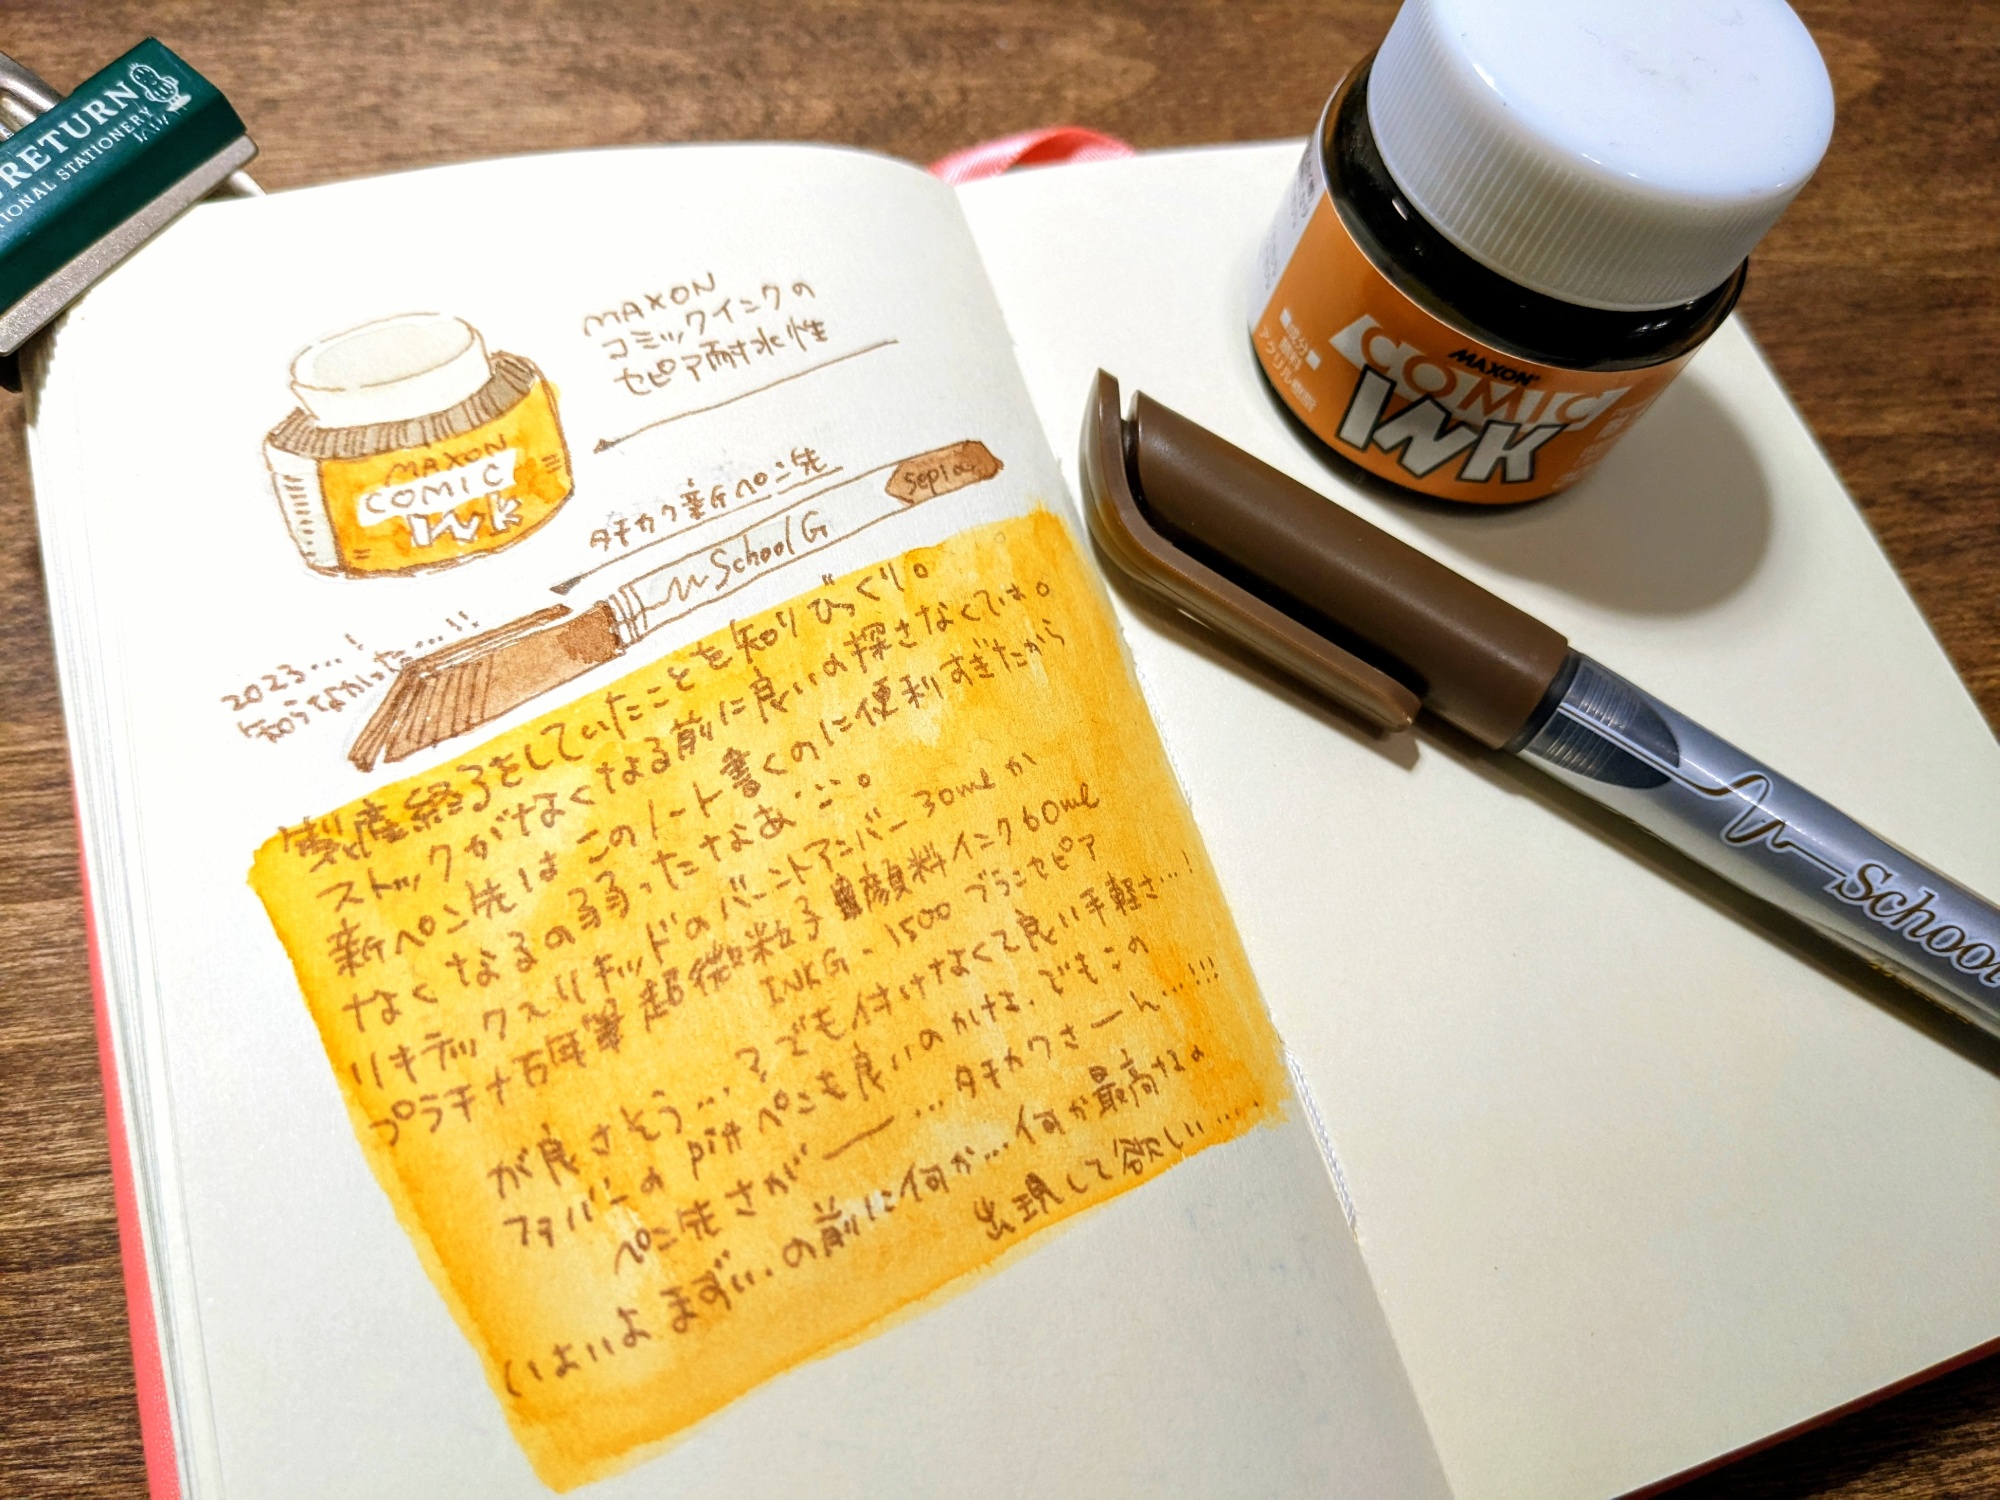 RETURN
TIONAL STATIONERY
MAXON
コミックインクの
セピア耐水性
MAXON
COMIC
INK
タチカワ新ペン先
School G
sepia
2023…!
知らなかった……!!
製産終了をしていたことを知りびっくり。
ストックがなくなる前に良いの探さなくては。
新ペン先はこのノート書くのに便利すぎたから
なくなるの弱ったなあ…。
リキテックスリキッドのバーントアンバー30mlか
プラチナ万年筆超微粒子顔料インク60ml
INKG-1500 ブランセピア
が良さそう…?でも付けなくて良い手軽さ…!
ファバーのpittペンも良いのかな、でもこの
ペン先さがー…タチカワさーん…!!!
いよいよまずい、の前に何か…何か最高なの
出現して欲しい……
MAXON
COMIC
INK
■成分■
顔料
アクリル樹脂
School